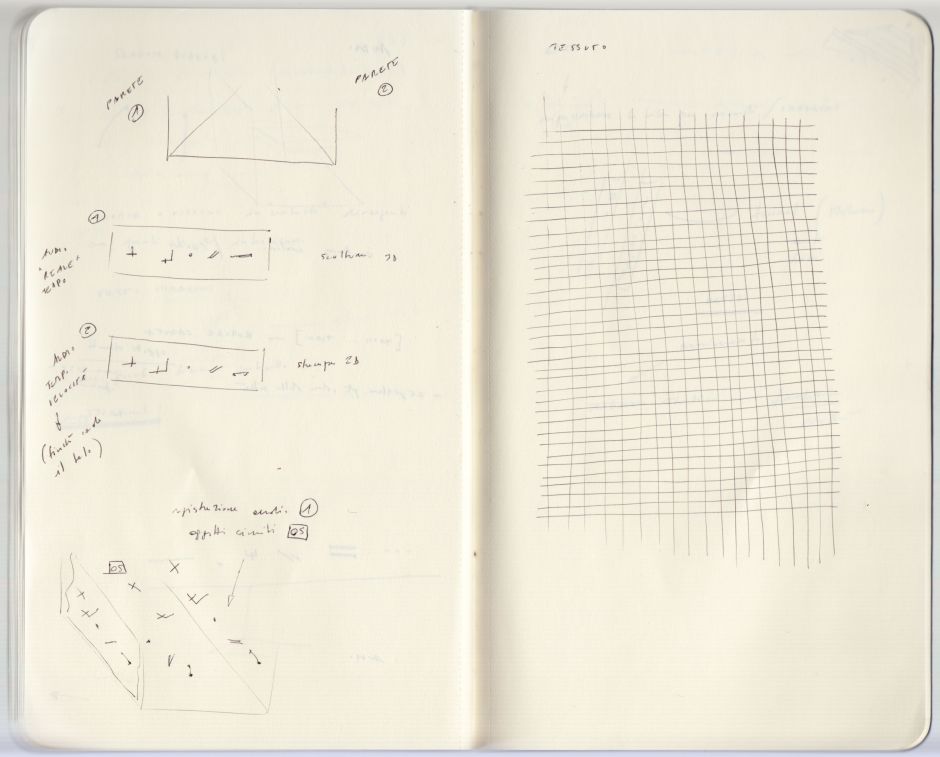 PARETE
1
PARETE
2
1
AUDIO
"REALE"
TEMPO
2
AUDIO
TEMPO
VELOCITÀ
(finché cade
il telo)
stampa 2D
registrazione audio 1
oggetti cuciti OS
OS
TESSUTO